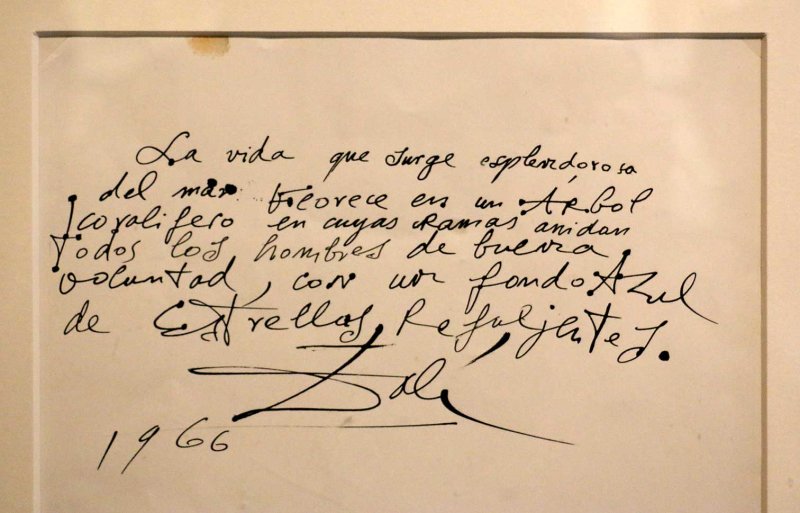 La vida que surge esplendórosa
del mar florece en un Arbol
coralifero en cuyas Ramas anidan
Todos los hombres de buena
voluntad, con un fondo Azul
de Estrellas Refuljentes.
Dalí
1966